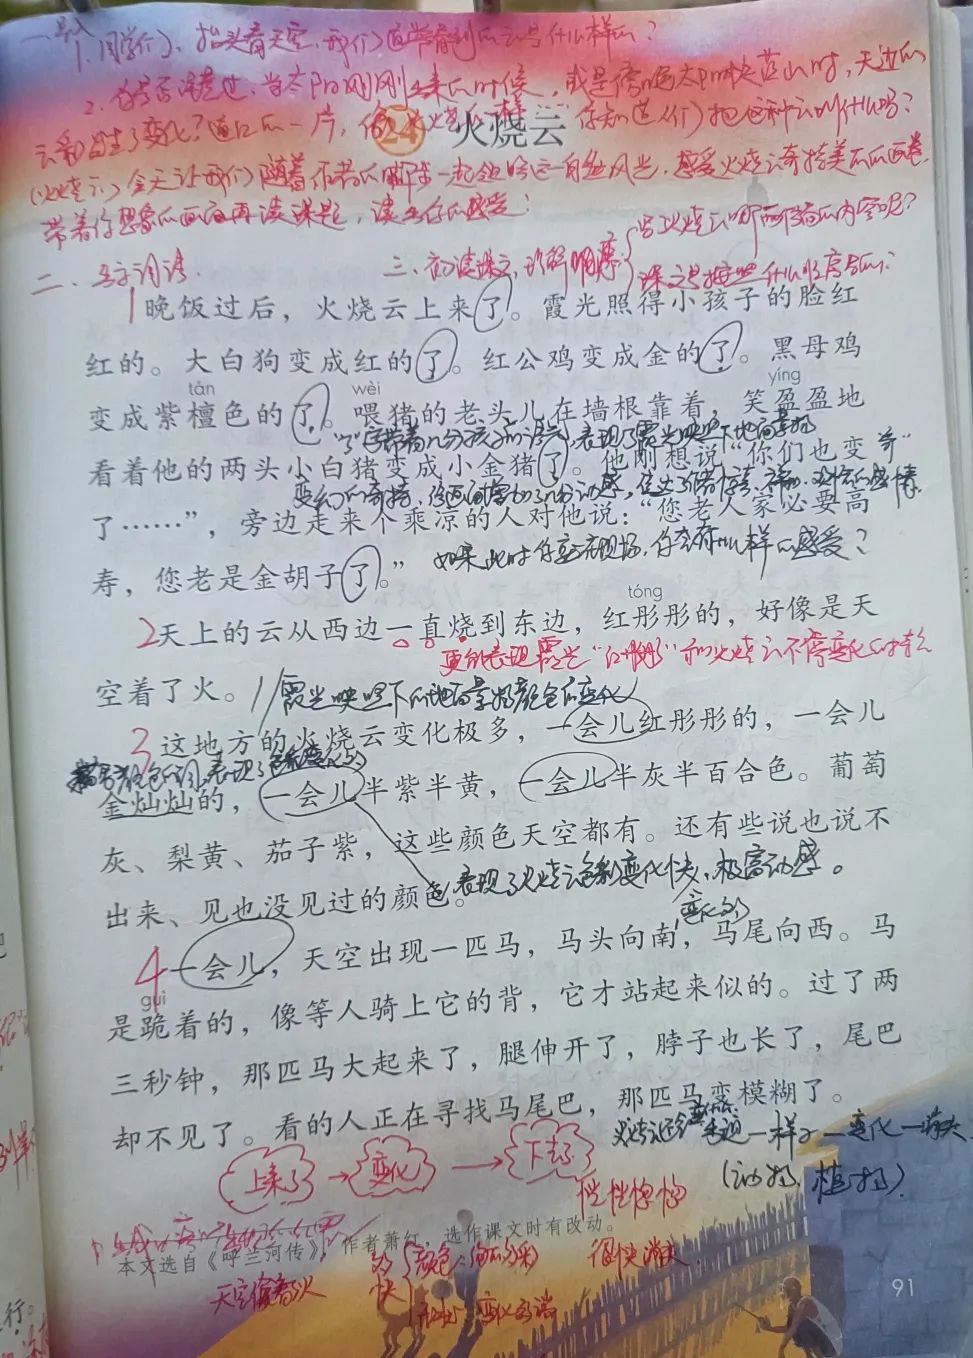 1. 同学们，抬头看天空，我们通常看到的云是什么样的？
2. 当太阳刚刚上来的时候，或是傍晚太阳快落山时，天边的
云彩发生了变化？通红的一片，你知道人们把这种云叫什么吗？
24 火烧云
(火烧云) 今天让我们随着作者的脚步一起领略这一自然风光，感受火烧云奇特美丽的画卷，
带着你想象的画面再读课题，读出你的感受！
二、写字词语。
三、初读课文，理解顺序
写火烧云哪两方面的内容呢？
课文是按照什么顺序写的？
1 晚饭过后，火烧云上来了。霞光照得小孩子的脸红
红的。大白狗变成红的了。红公鸡变成金的了。黑母鸡
tán wèi yíng
变成紫檀色的了。喂猪的老头儿在墙根靠着，笑盈盈地
"了"字带着几分孩子的语气，表现了霞光映照下地面景物
看着他的两头小白猪变成小金猪了。他刚想说“你们也变
变幻的奇特，给画面增加了几分动感，
了……”，旁边走来个乘凉的人对他说：“您老人家必要高
如果此时你就在现场，你会有什么样的感受？
寿，您老是金胡子了。”
tóng
2 天上的云从西边一直烧到东边，红彤彤的，好像是天
更能表现霞光“红彤彤”和火烧云不停变化的特点
空着了火。
//霞光映照下的地面景物颜色的变化
3 这地方的火烧云变化极多，一会儿红彤彤的，一会儿
金灿灿的，一会儿半紫半黄，一会儿半灰半百合色。葡萄
灰、梨黄、茄子紫，这些颜色天空都有。还有些说也说不
出来、见也没见过的颜色。
表现了火烧云色彩变化快，极富动感。
变化多
4 一会儿，天空出现一匹马，马头向南，马尾向西。马
guì
是跪着的，像等人骑上它的背，它才站起来似的。过了两
三秒钟，那匹马大起来了，腿伸开了，脖子也长了，尾巴
却不见了。看的人正在寻找马尾巴，那匹马变模糊了。
一样子一变化一消失
(动物、植物)
上来了 → 变化 → 下去了
恍恍惚惚
很快消失
本文选自《呼兰河传》，作者萧红，选作课文时有改动。
天空像着火
多
快
颜色：绚丽多彩
形状：变化多端
91